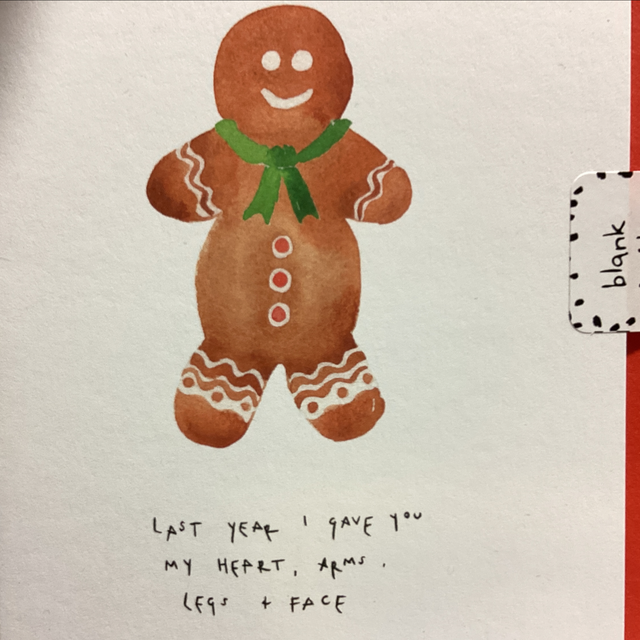 LAST YEAR I GAVE YOU
MY HEART, ARMS,
LEGS + FACE
blank